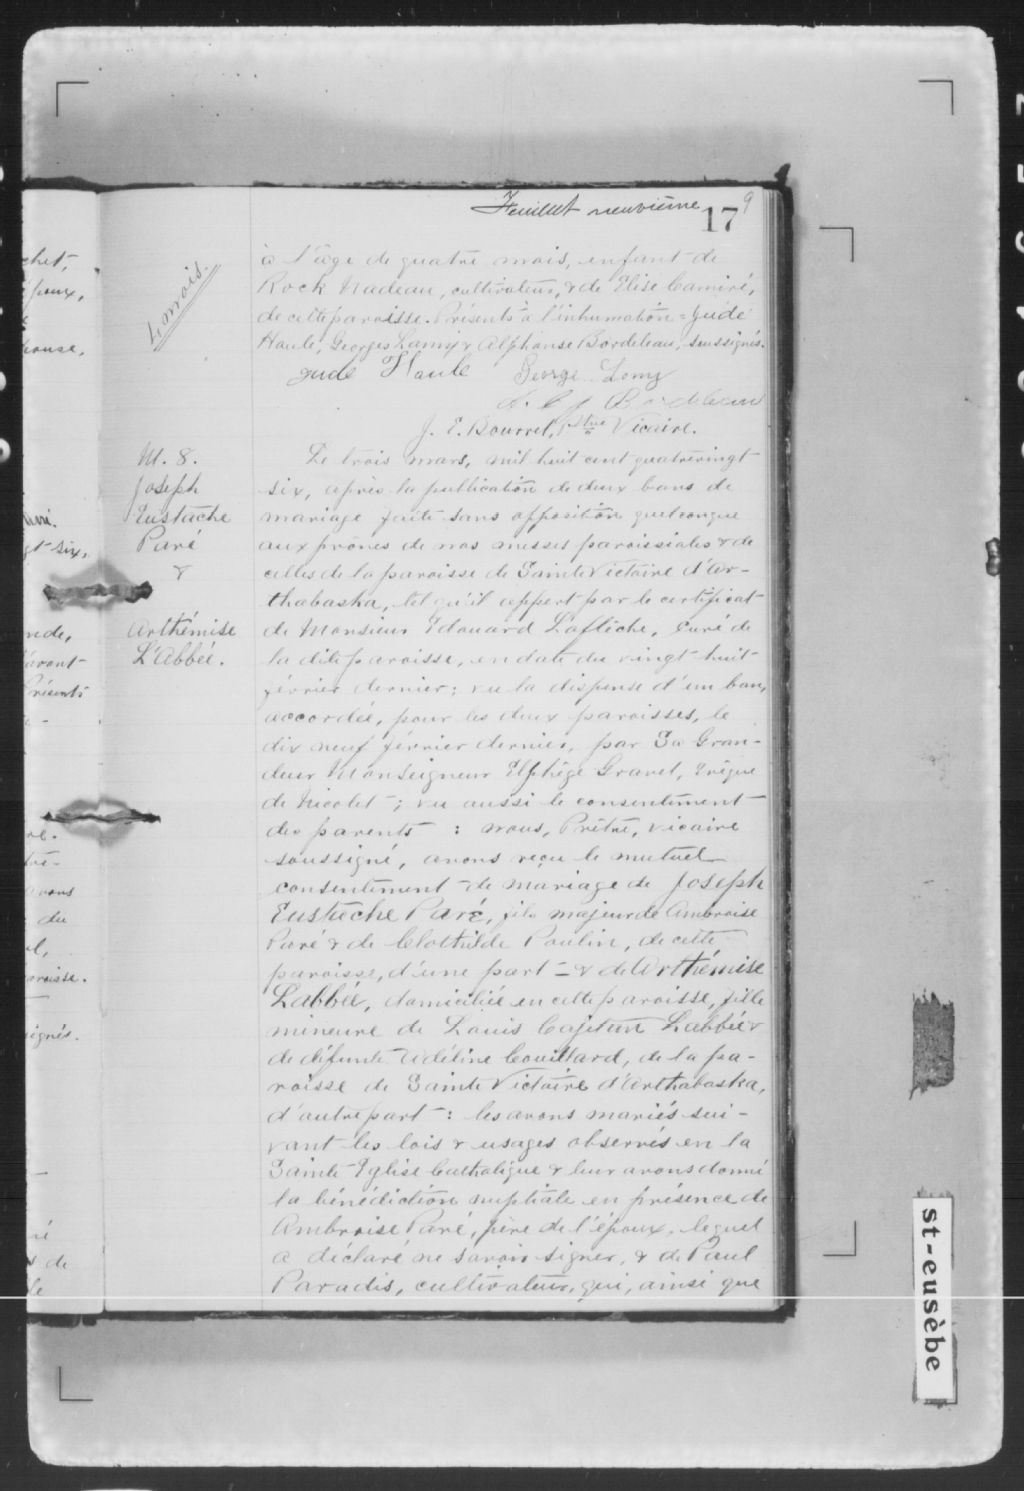 Feuillet neuvième 17 9
à l'âge de quatre mois, enfant de
Rock Nadeau, cultivateur, & de Elise Camiré,
de cette paroisse. Présents à l'inhumation = Jude
Haule, Georges Lamy & Alphonse Bordeleau, soussignés.
4 mois.
Jude Haule George Lamy
Bordeleau
J. E. Bourret, Ptre Vicaire.
M. 8.
Joseph
Eustache
Paré
&
Arthémise
L'Abbée.
Le trois mars, mil huit cent quatrevingt
six, après la publication de deux bans de
mariage faite sans opposition quelconque
aux prônes de nos messes paroissiales & de
celles de la paroisse de Sainte Victoire d'Ar-
thabaska, tel qu'il appert par le certificat
de Monsieur Edouard Laflèche, Curé de
la dite paroisse, en date du vingt huit
février dernier; vu la dispense d'un ban,
accordée, pour les deux paroisses, le
dix neuf février dernier, par Sa Gran-
deur Monseigneur Elphège Gravel, Evêque
de Nicolet; vu aussi le consentement
des parents : nous, Prêtre, vicaire
soussigné, avons reçu le mutuel
consentement de mariage de Joseph
Eustache Paré, fils majeur de Ambroise
Paré & de Clothilde Poulin, de cette
paroisse, d'une part = & de Arthémise
Labbée, domiciliée en cette paroisse, fille
mineure de Louis Cajetan Labbée &
de défunte Adéline Couillard, de la pa-
roisse de Sainte Victoire d'Arthabaska,
d'autre part : les avons mariés sui-
vant les lois & usages observés en la
Sainte Eglise Catholique & leur avons donné
la bénédiction nuptiale en présence de
Ambroise Paré, père de l'époux, lequel
a déclaré ne savoir signer, & de Paul
Paradis, cultivateur, qui, ainsi que
chet,
poux,
ouse,
gt-six,
nde,
avant-
Présents
tre-
avons
du
paroisse.
signés.
de
st-eusèbe